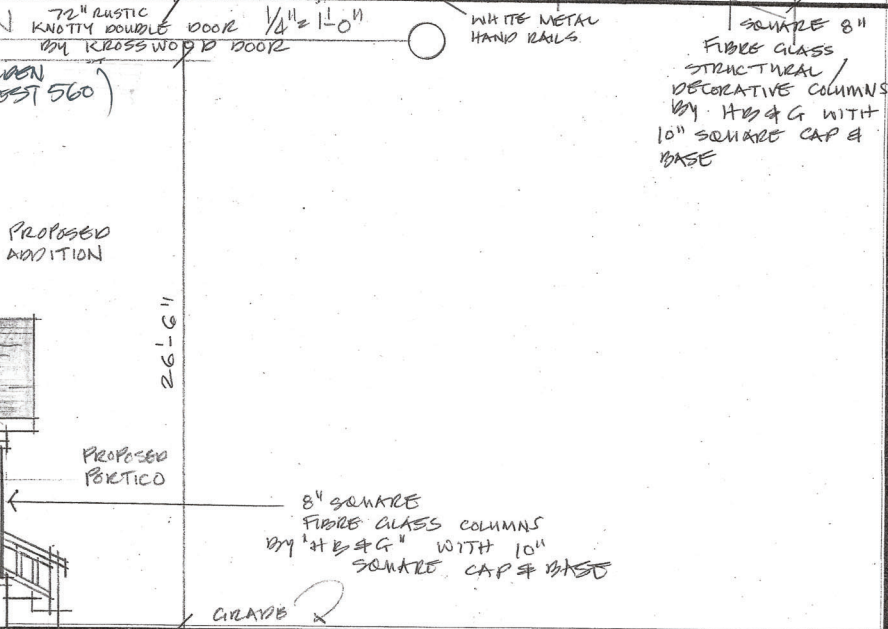 72" RUSTIC
KNOTTY DOUBLE DOOR
BY KROSSWOOD DOOR
1/4" = 1'-0"
WHITE METAL
HAND RAILS
SQUARE 8"
FIBRE GLASS
STRUCTURAL /
DECORATIVE COLUMNS
BY HB & G WITH
10" SQUARE CAP &
BASE
560)
PROPOSED
ADDITION
26'-6"
PROPOSED
PORTICO
8" SQUARE
FIBRE GLASS COLUMNS
BY "HB & G" WITH 10"
SQUARE CAP & BASE
GRADE